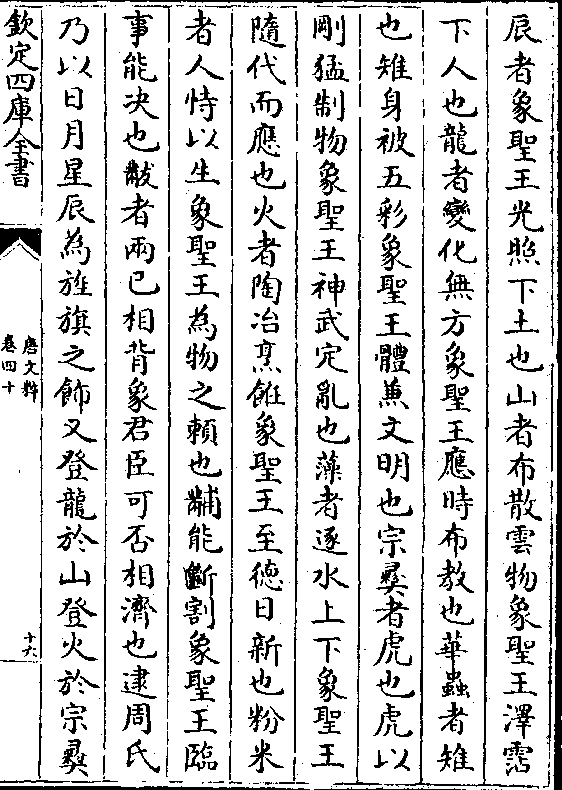 辰者象聖王光照下土也山者布散雲物象聖王澤霑
下人也龍者變化無方象聖王應時布教也華蟲者雉
也雉身被五彩象聖王體兼文明也宗彞者虎也虎以
剛猛制物象聖王神武定亂也藻者逐水上下象聖王
隨代而應也火者陶冶烹餁象聖王至徳日新也粉米
者人恃以生象聖王為物之頼也黼能斷割象聖王臨
事能决也黻者兩已相背象君臣可否相濟也逮周氏
乃以日月星辰為旌旗之飾又登龍於山登火於宗彞
欽定四庫全書
唐文粹
卷四十
十六